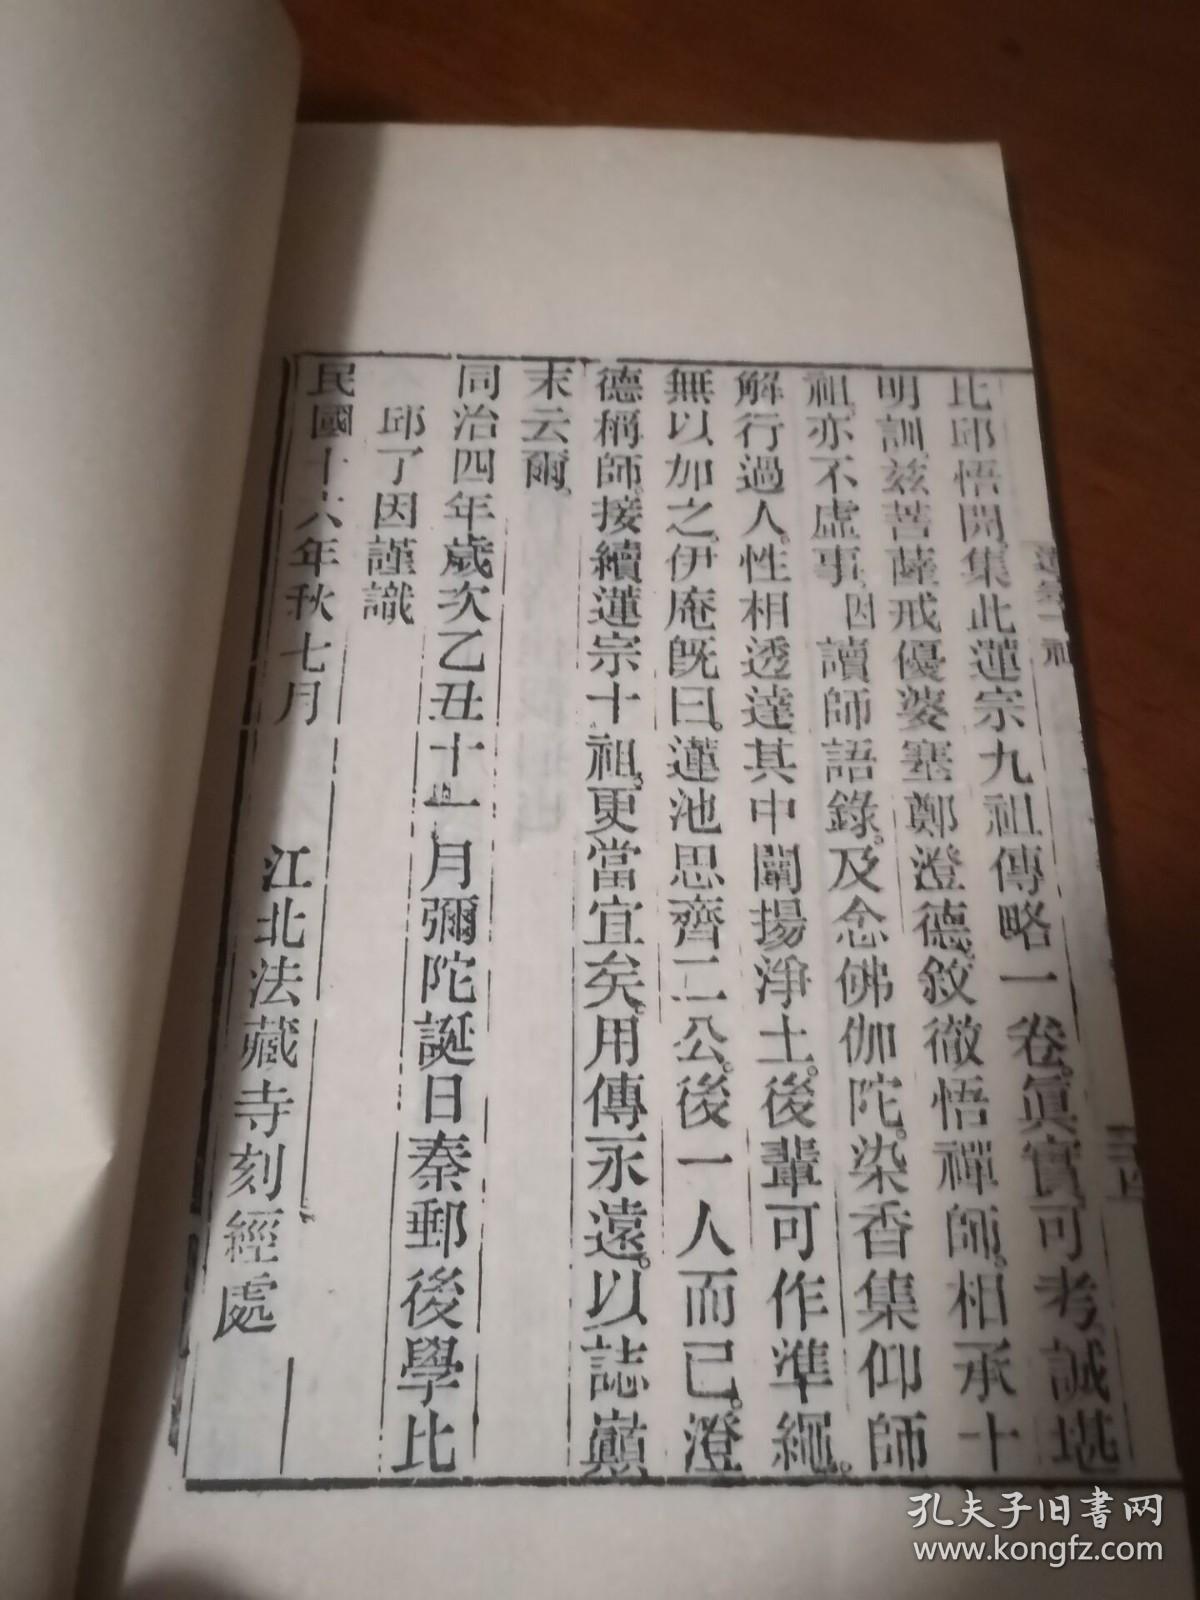 比邱悟開集此蓮宗九祖傳略一卷。眞實可考誠堪
明訓。茲菩薩戒優婆塞鄭澄德。敘徹悟禪師。相承十
祖。亦不虛事。因讀師語錄。及念佛伽陀。染香集仰師
解行過人。性相透達。其中闡揚淨土。後輩可作準繩。
無以加之。伊庵旣曰。蓮池思齊二公。後一人而已。澄
德稱師。接續蓮宗十祖。更當宜矣。用傳永遠。以誌巔
末云爾。
同治四年歲次乙丑十一月彌陀誕日秦郵後學比
邱了因謹識
民國十六年秋七月
江北法藏寺刻經處
孔夫子旧书网
www.kongfz.com